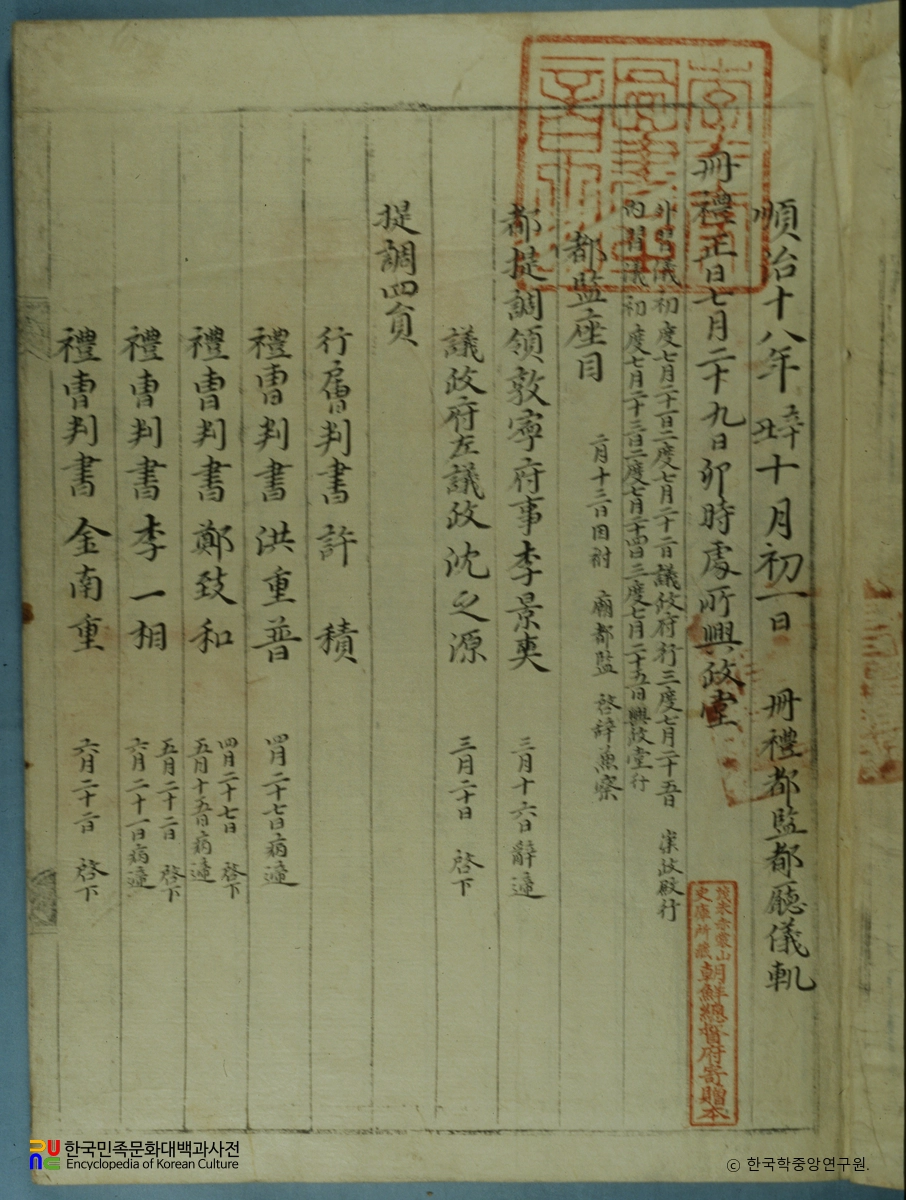 順治十八年辛丑十月初一日 冊禮都監都廳儀軌
冊禮正日七月二十九日卯時處所興政堂
外習儀初度七月二十一日二度七月二十二日議政府行三度七月二十五日 崇政殿行
內習儀初度七月二十三日二度七月二十四日三度七月二十五日興政堂行
都監座目 二月十三日因祔 廟都監 啓辭兼察
都提調領敦寧府事李景奭 三月十六日辭遞
議政府左議政沈之源 三月二十日 啓下
提調四員
行戶曹判書許積
禮曹判書洪重普 四月二十七日病遞
禮曹判書鄭致和 四月二十七日 啓下 五月十五日病遞
禮曹判書李一相 五月二十二日 啓下 六月二十一日病遞
禮曹判書金南重 六月二十二日 啓下
茂朱赤裳山
史庫所藏
朝鮮總督府寄贈本
한국민족문화대백과사전
Encyclopedia of Korean Culture
ⓒ 한국학중앙연구원.